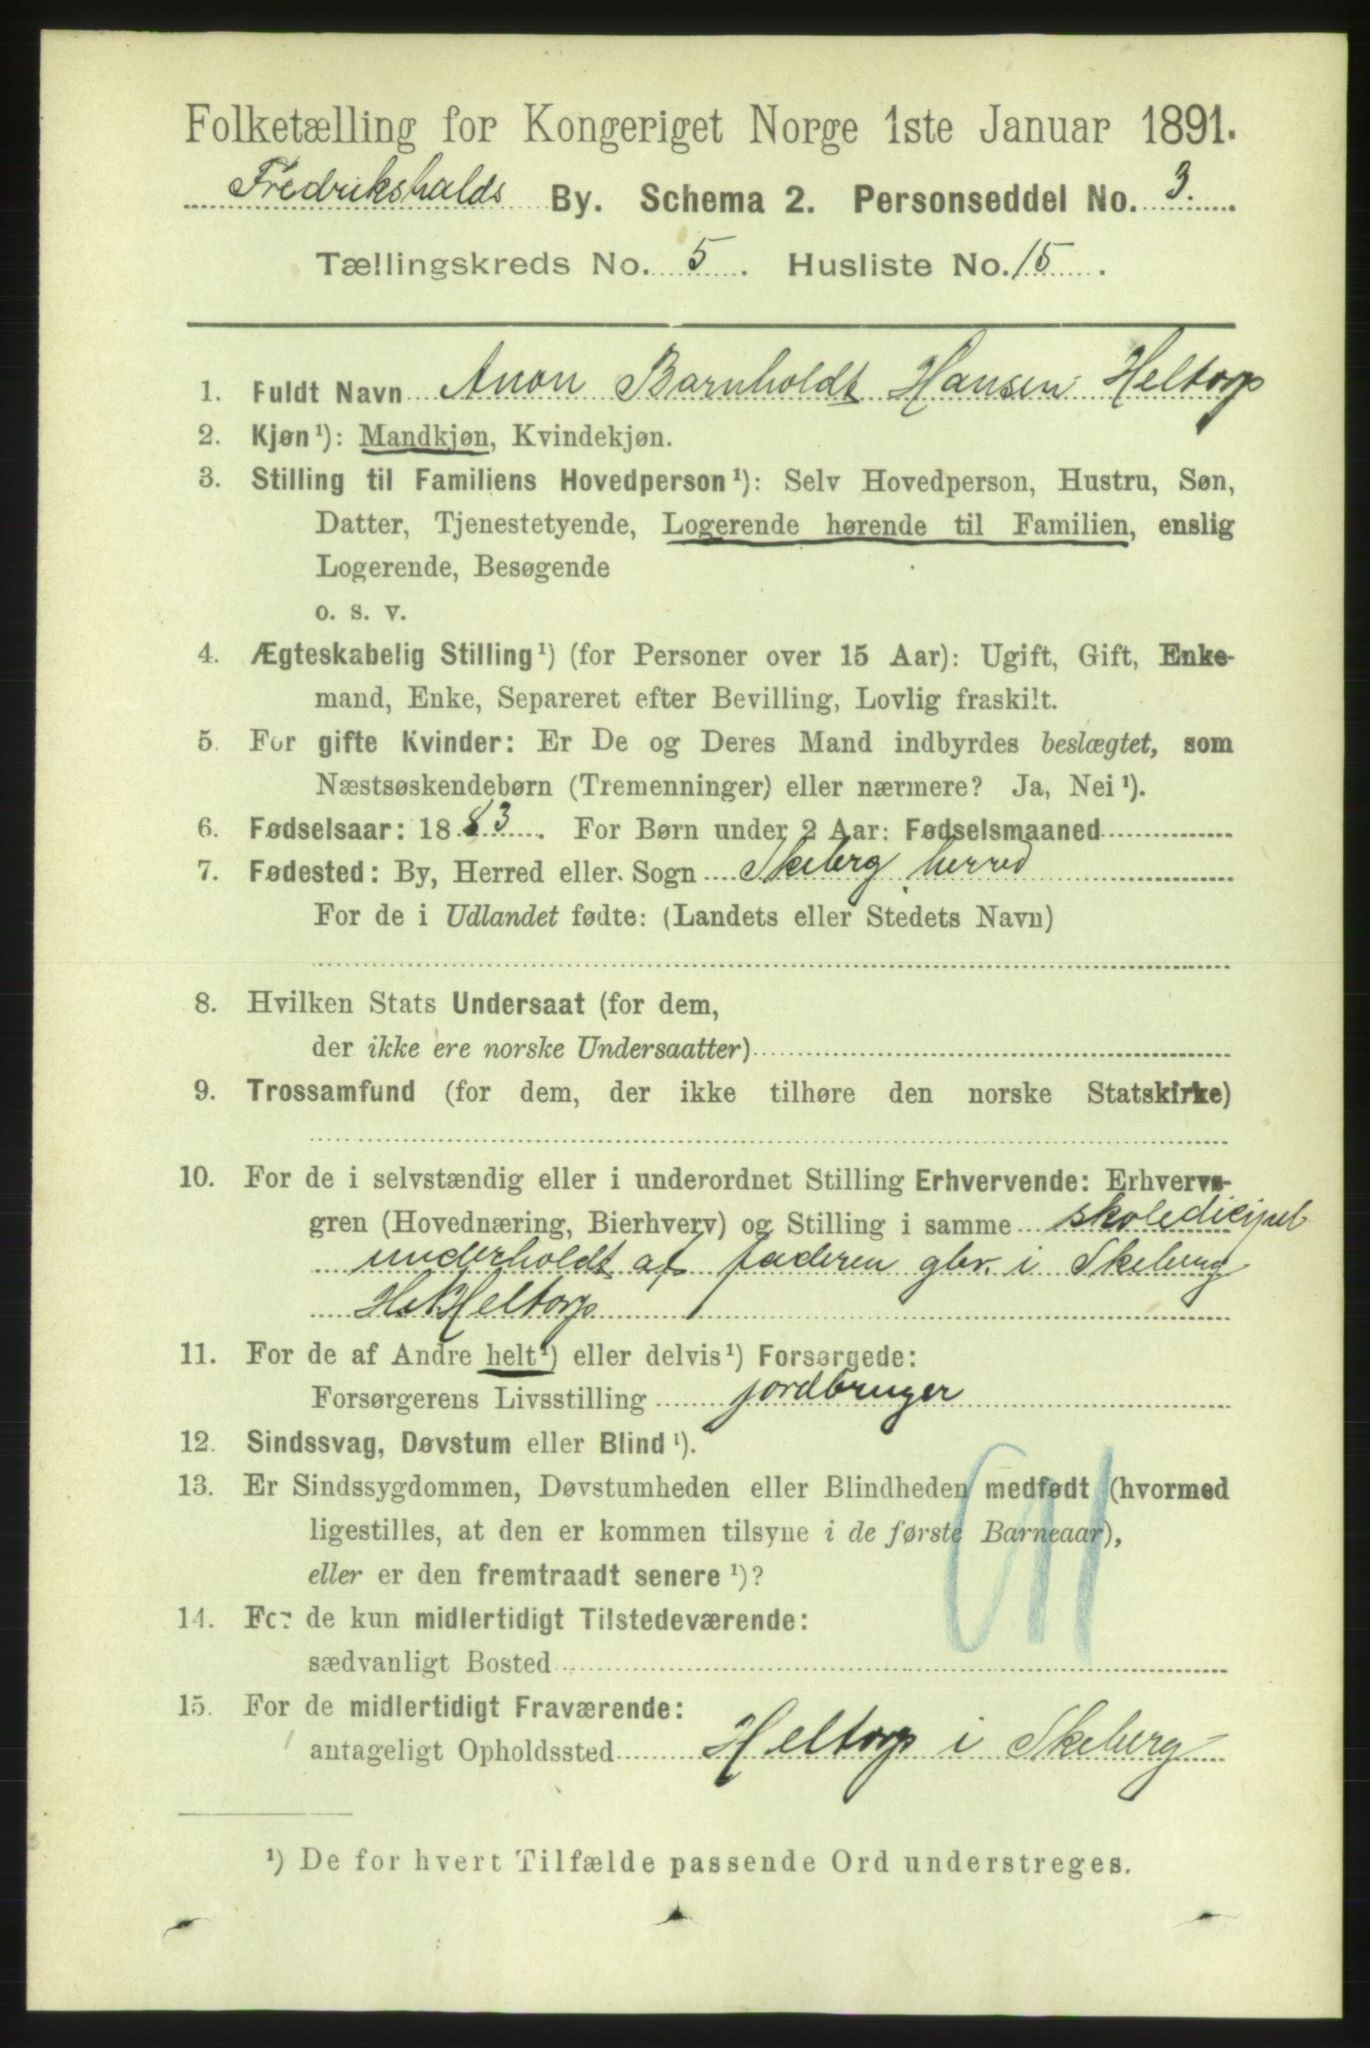 Folketælling for Kongeriget Norge 1ste Januar 1891.
Fredrikshalds By. Schema 2. Personseddel No. 3.
Tællingskreds No. 5. Husliste No. 15.
1. Fuldt Navn Anon Barnholdt Hansen Heltorp
2. Kjøn¹): Mandkjøn, Kvindekjøn.
3. Stilling til Familiens Hovedperson¹): Selv Hovedperson, Hustru, Søn,
Datter, Tjenestetyende, Logerende hørende til Familien, enslig
Logerende, Besøgende
o. s. v.
4. Ægteskabelig Stilling¹) (for Personer over 15 Aar): Ugift, Gift, Enke-
mand, Enke, Separeret efter Bevilling, Lovlig fraskilt.
5. For gifte Kvinder: Er De og Deres Mand indbyrdes beslægtet, som
Næstsøskendebørn (Tremenninger) eller nærmere? Ja, Nei¹).
6. Fødselsaar: 1883. For Børn under 2 Aar: Fødselsmaaned
7. Fødested: By, Herred eller Sogn Skeberg herred
For de i Udlandet fødte: (Landets eller Stedets Navn)
8. Hvilken Stats Undersaat (for dem,
der ikke ere norske Undersaatter)
9. Trossamfund (for dem, der ikke tilhøre den norske Statskirke)
10. For de i selvstændig eller i underordnet Stilling Erhvervende: Erhvervs-
gren (Hovednæring, Bierhverv) og Stilling i samme skoledicipel
underholdt af faderen gbr. i Skeberg
H. Heltorp
11. For de af Andre helt¹) eller delvis¹) Forsørgede:
Forsørgerens Livsstilling jordbruger
12. Sindssvag, Døvstum eller Blind¹).
13. Er Sindssygdommen, Døvstumheden eller Blindheden medfødt (hvormed
ligestilles, at den er kommen tilsyne i de første Barneaar),
eller er den fremtraadt senere¹)?
14. For de kun midlertidigt Tilstedeværende:
sædvanligt Bosted
15. For de midlertidigt Fraværende:
antageligt Opholdssted Heltorp i Skeberg
¹) De for hvert Tilfælde passende Ord understreges.